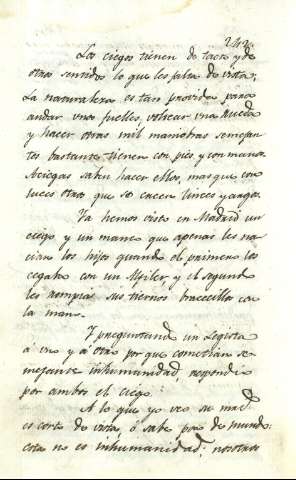 242.
Los ciegos tienen de tacto y de
otros sentidos lo que les falta de vista;
La naturaleza es tan provida para
andar unos fuelles, voltear una rueda
y hacer otras mil maniobras semejan-
tes bastante tienen con pies y con manos
A ciegas saben hacer ellos, mas que con
luces otros que se creen linces y argos.
Ya hemos visto en Madrid un
ciego y un manco que apenas les na-
cian los hijos quando el primero los
cegaba con un Alfiler, y el segundo
les rompia sus tiernos bracecillos con
la mano.
Y preguntando un Legista
á uno y á otro por que cometian se-
mejante inhumanidad respondio
por ambos el ciego
A lo que yo veo su md.
es corto de vista, ó sabe poco de mundo:
esta no es inhumanidad; nosotros